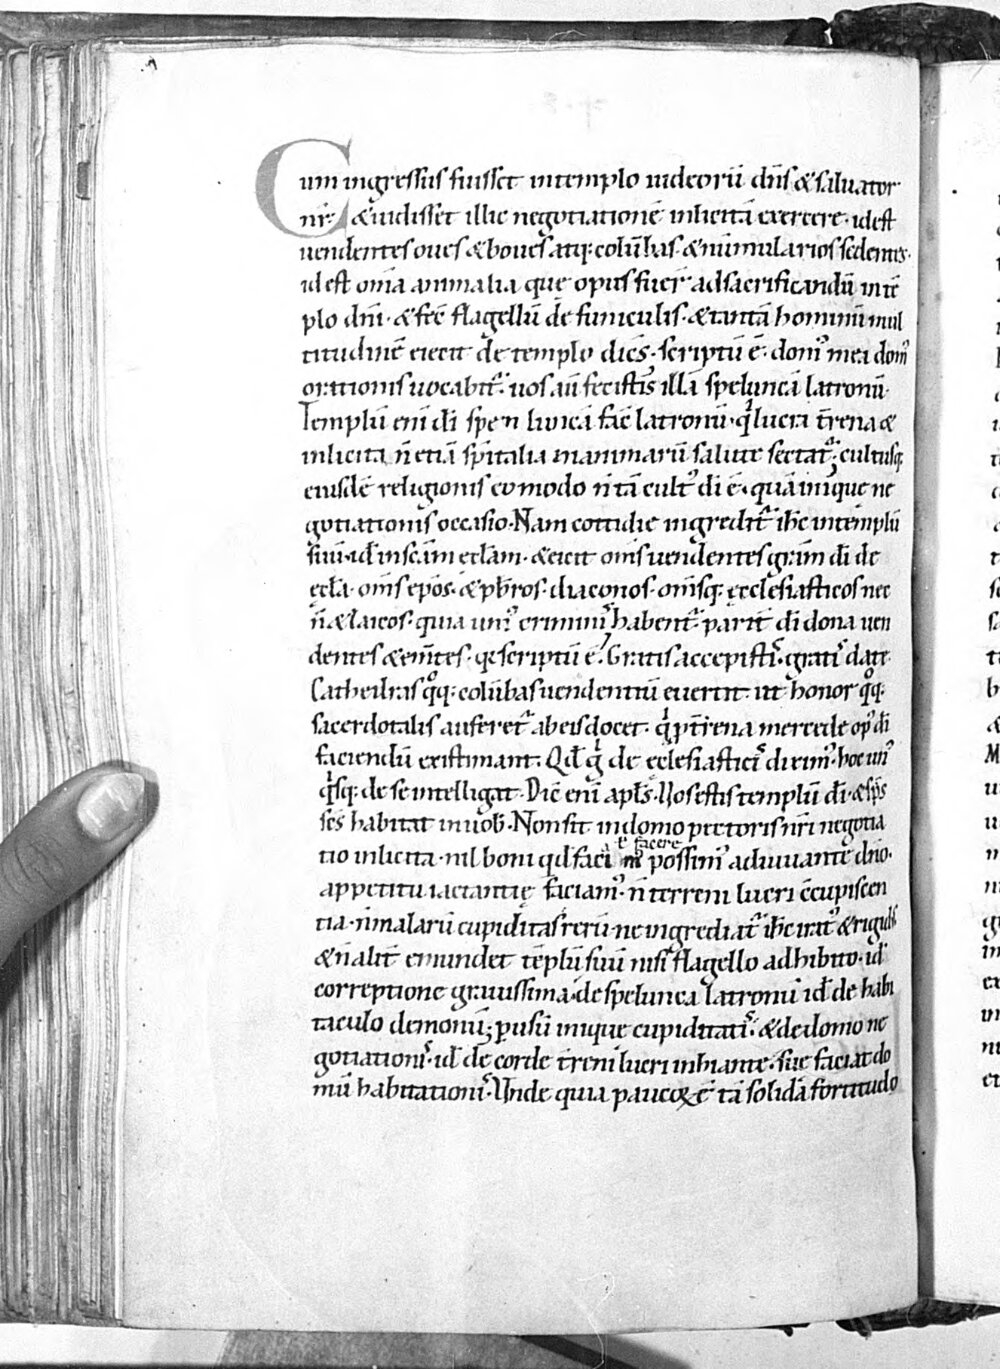 Cum ingressus fuisset intemplo iudeorū dn̄s & saluator
nr̄. & uidisset illic negotiationē inlicitā exercere. idest
uendentes oues & boues atq; colūbas & nūmularios sedentes.
id est om̄ia animalia que opus fuer̄ adsacrificandū intē
plo dn̄i. & fec̄ flagellū de funiculis. & tantā hominū mul
titudinē eiecit de templo dicēs. scriptū ē. domꝰ mea domꝰ
orationis uocabit᷑. uos aū fecistis illā speluncā latronū.
Templū enī dī speluncā fac̄ latronū. q̇ lucra tr̄ena &
inlicita n̄ etiā sp̄italia in animarū salute sectat᷑. cultusq;
eiusdē religionis eo modo n̄ tā cultꝰ di ē. quā inique ne
gotiationis occasio. Nam cottidie ingredit᷑ ihc̄ intemplū
suū. id̄ in sc̄am eccl̄am. & eicit om̄s uendentes gr̄am dī de
ęccl̄a. om̄s ep̄os. & pb̄ros. diaconos. om̄sq; ęcclesiasticos nec
n̄ & laicos. quia unꝰ criminis habent᷑ parit̄ dī dona uen
dentes & em̄tes. q; scriptū ē. Gratis accepistis. gratis date.
Cathedras qͦq; colūbas uendentiū euertit. ut honor qͦq;
sacerdotalis auferet᷑ ab eis docet. q̇ p tr̄ena mercede opꝰ dī
faciendū existimant. Qd̄ g̊ de ecclesiasticis diximꝰ. hoc unꝰ
q̇sq; de se intelligat. Dic̄ enī apl̄s. Uos estis templū dī. & sp̄s
sc̄s habitat in uob̄. Non sit in domo pectoris nr̄i negotia
ł facere
tio inlicita. nil boni qd̄ possimꝰ adiuuante dn̄o.
appetitu iactantię faciamꝰ. n̄ terreni lucri c̄cupiscen
tia. n̄ malarū cupiditas rerū. ne ingrediat᷑ ihc̄ iratꝰ & rigidus
& n̄ alit̄ emundet tēplū suū nisi flagello adhibito. id̄
correptione grauissima. de spelunca latronū id̄ de habi
taculo demonū. p usū inique cupiditatis. & de domo ne
gotiationis. id̄ de corde tr̄eni lucri inhiante. sue faciat do
mū habitationis. Unde quia paucoꝝ ē tā solida fortitudo